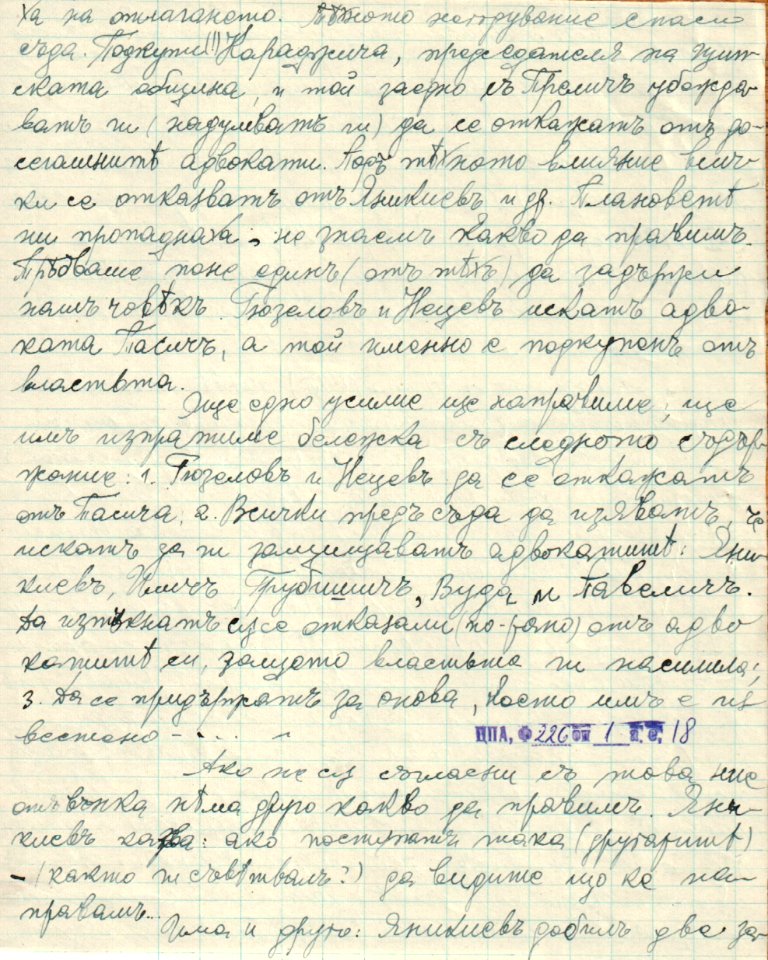 ха на отлагането. Тѣхното негодувание спаси
съда. Подкупи Караджича, председателя на
ската община, и той заедно съ Преличъ убежда-
ватъ ги (надумватъ ги) да се откажатъ отъ до-
сегашнитѣ адвокати. Подъ тѣхното влияние всич-
ки се отказватъ отъ Яникиевъ и др. Плановетѣ
ни пропаднаха, не знаемъ какво да правимъ.
Трѣбваше поне единъ (отъ тѣхъ) да задържи
нашъ човѣкъ. Гюзеловъ и Нецевъ искатъ адво-
ката Пасичъ, а той именно е подкупенъ отъ
властьта.
Още едно усилие ще направиме, ще
имъ изпратиме бележка съ следното съдър-
жание: 1. Гюзеловъ и Нецевъ да се откажатъ
отъ Пасича. 2. Всички предъ съда да изяватъ, че
искатъ за ги защищаватъ адвокатитѣ: Яни-
киевъ, Иличъ Грубишичъ, Вуда и Павеличъ.
Да изтъкнатъ су се отказали (по-рано) отъ адво-
катитѣ си, защото властьта ги насилила;
3. Да се придържатъ за онова, което имъ е из
вестено - . . . "
ЦПА, Ф 226 оп 1 а. е. 18
Ако не су съгласни съ това ние
отвънка нѣма друго какво да правимъ. Яни-
киевъ казва: ако постъпатъ така (другаритѣ)
- (както ги съвѣтвалъ?) да видите що ке на-
правамъ...
Има и друго: Яникиевъ добилъ две за-